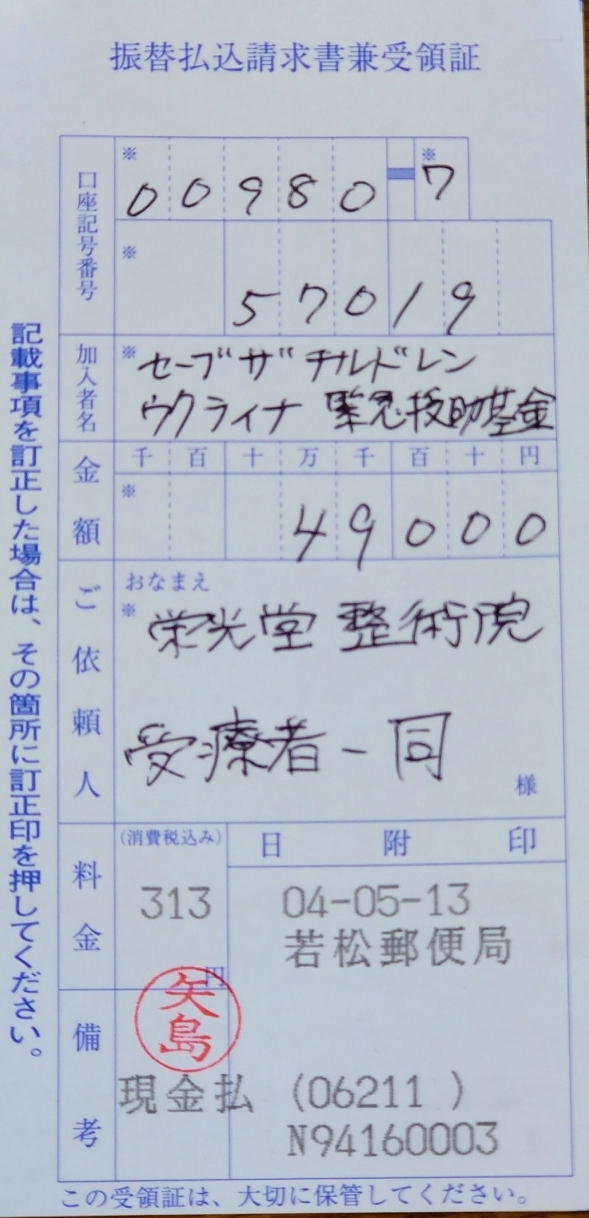 振替払込請求書兼受領証
口座記号番号
※ ※
00980-7
※
57019
加入者名
※ セーブ ザ チルドレン
ウクライナ 緊急援助基金
金額
千百十万千百十円
※
49000
ご依頼人
おなまえ
※
栄光堂 整術院
受療者一同
様
料金
(消費税込み)
313
円
日附印
04-05-13
若松郵便局
備考
矢島
現金払 (06211 )
N94160003
この受領証は、大切に保管してください。
記載事項を訂正した場合は、その箇所に訂正印を押してください。